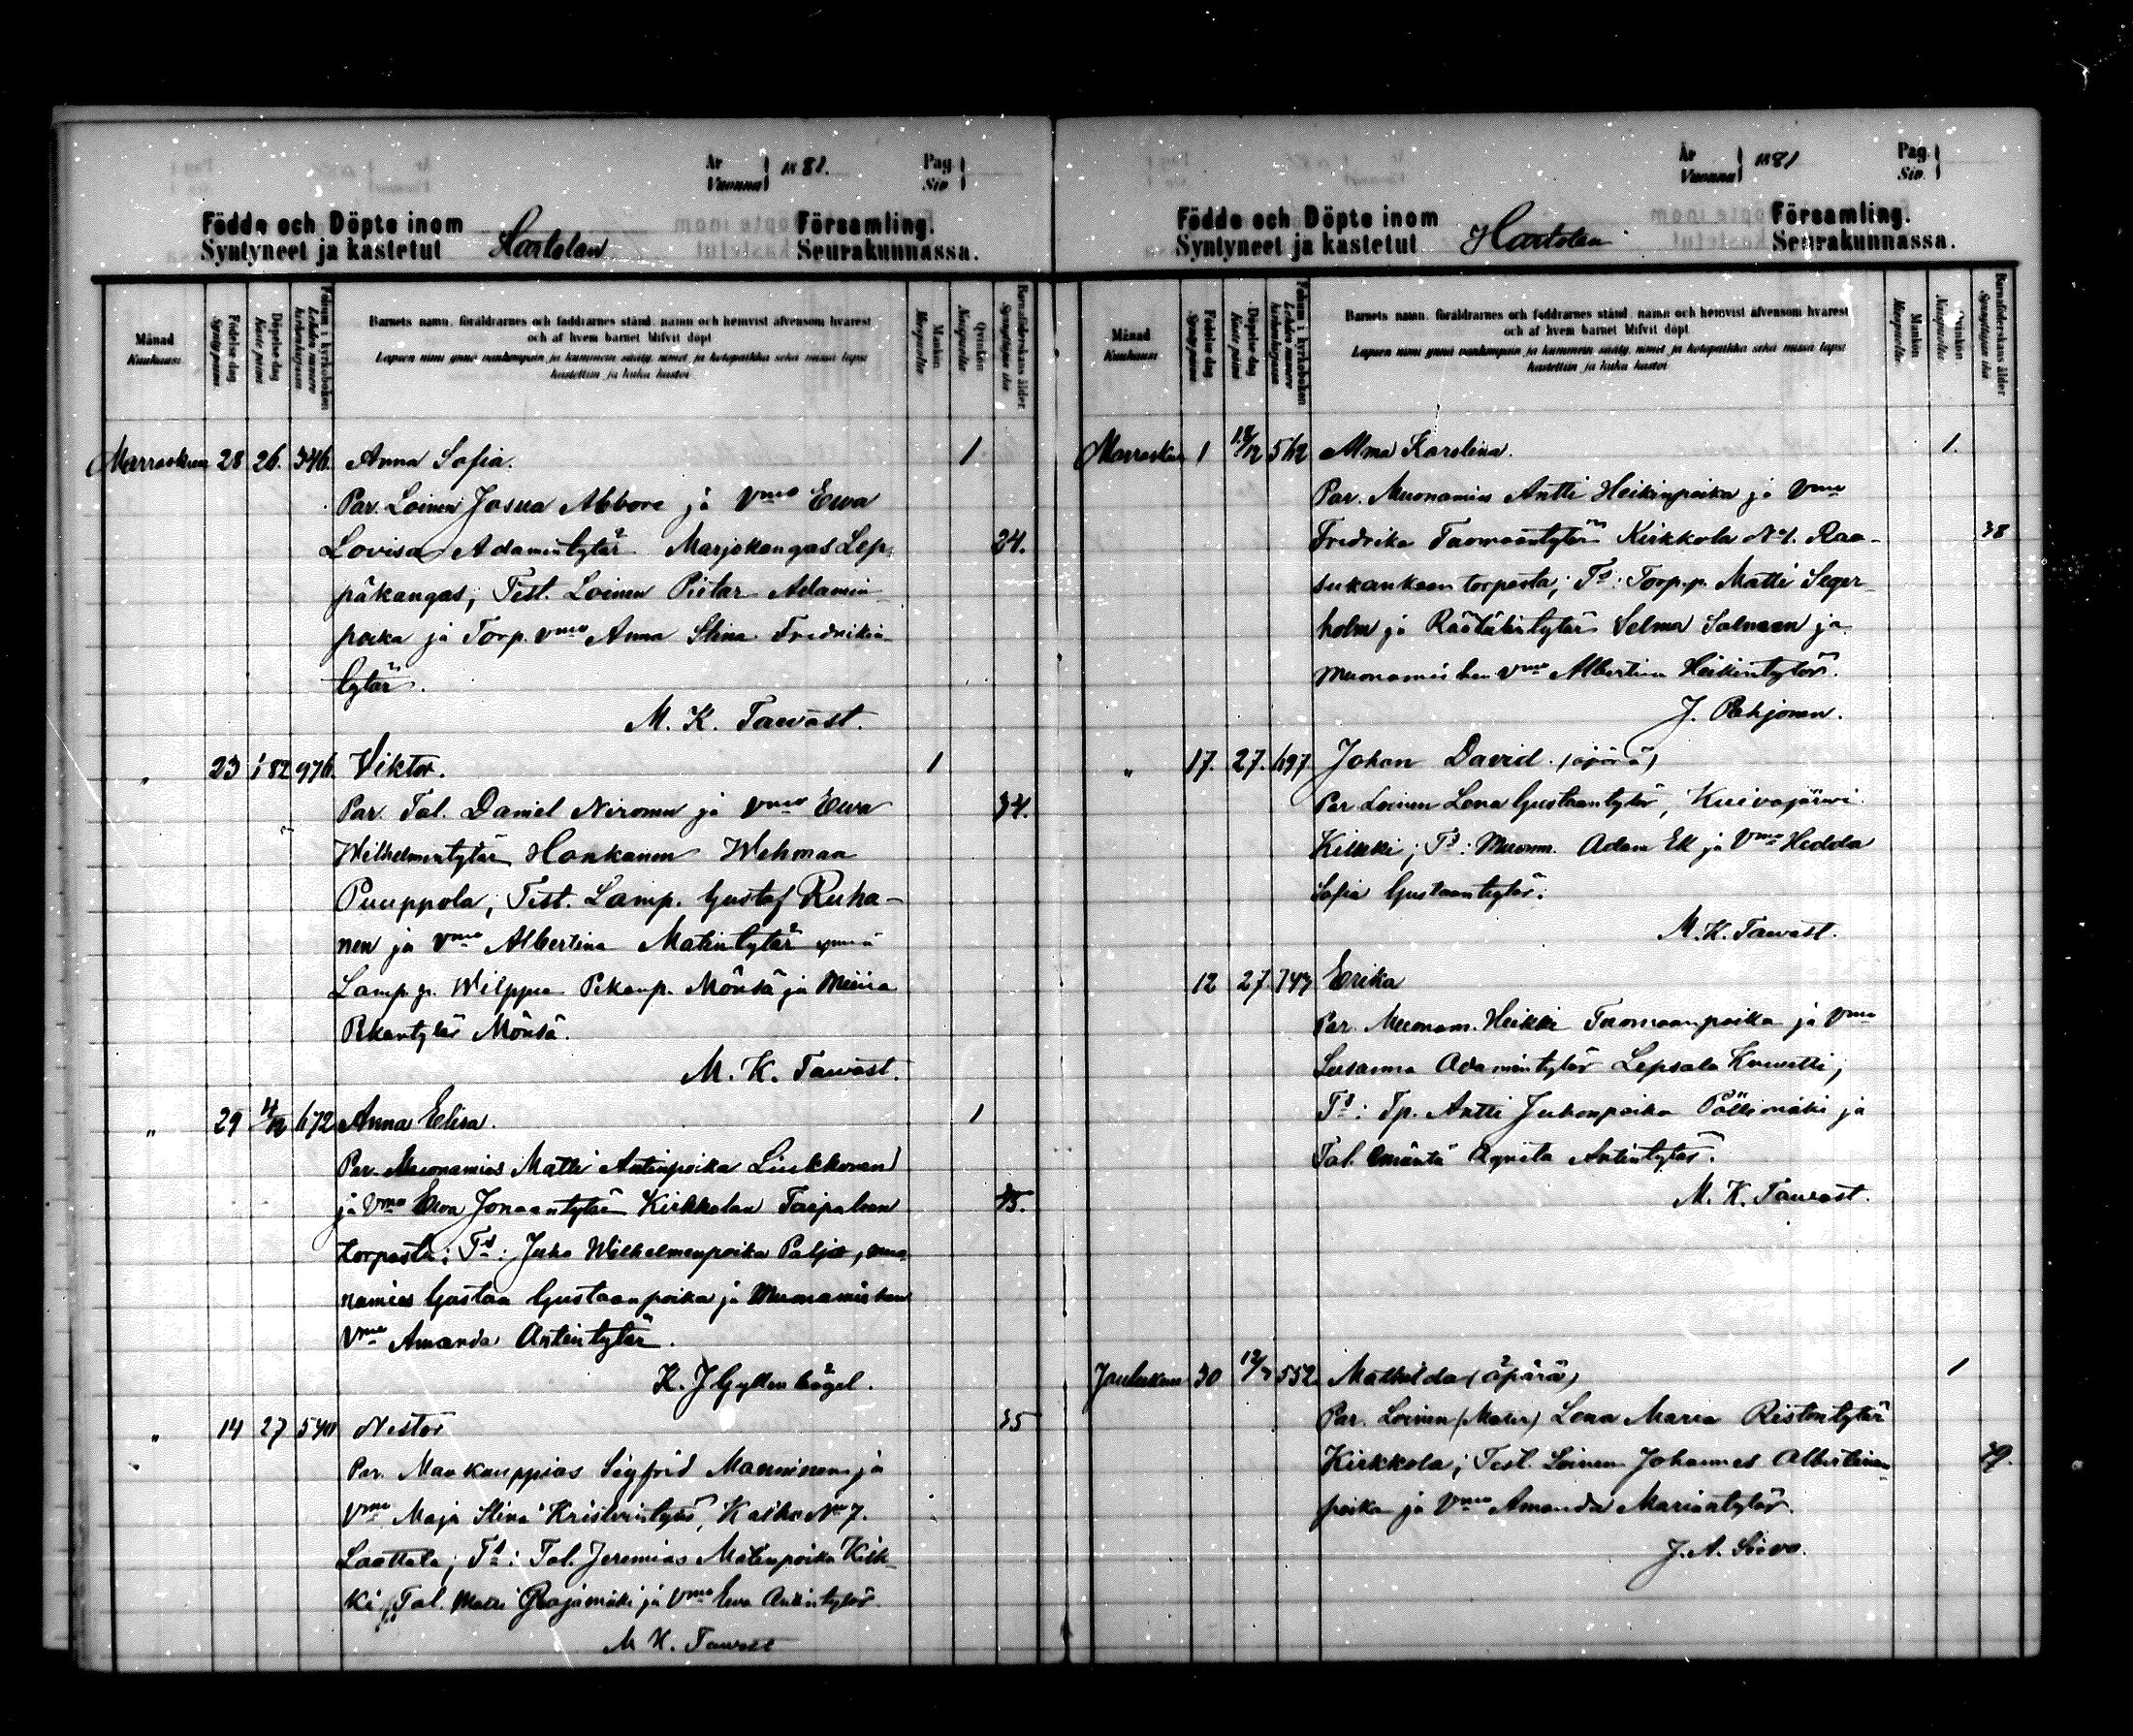 År Vuonna 1881. Pag. Siv.
Födde och Döpte inom Församling.
Syntyneet ja kastetut Hartolan Seurakunnassa.
Månad Kuukausi
Födelse dag Syntymäpäivä
Döpelse dag Kaste päivä
Folium i kyrkoboken Lehden numero kirkonkirjassa
Barnets namn, föräldrarnes och faddrarnes stånd, namn och hemvist äfvensom hvarest
och af hvem barnet blifvit döpt
Lapsen nimi ynnä vanhempain ja kummein sääty, nimet ja kotopaikka sekä missä lapsi
kastettiin ja kuka kastoi
Mankön Miespuolta
Qvinkön Naispuolta
Barnaföderskans ålder Synnyttäjän ikä
Marraskuu 28 26. 346. Anna Sofia. 1
Par. Loinen Josua Abbore ja Vmo Ewa
Lovisa Adamintytär Marjokangas Lep- 24.
päkangas; Test. Loinen Pietar Adamin-
poika ja Torp. vmo Anna Stina Fredrikin-
tytär.
M. K. Tawast.
" 23 1/82 976. Viktor. 1
Par. Tal. Daniel Nironen ja Vmo Ewa 34.
Wilhelmintytär Honkanen Wehmaa
Puuppola; Test. Lamp. Gustaf Ruha-
nen ja Vmo Albertina Matintytär ynnä
Lamp. p. Wilppu Pekanp. Mönsä ja Miina
Pekantytär Mönsä.
M. K. Tawast.
" 29 4/12 672 Anna Elisa. 1
Par. Muonamies Matti Antinpoika Liukkonen
ja Vmo Ewa Jonaantytär Kirkkolan Taipaleen 35.
torpasta; Td: Juho Wilhelmenpoika Palja, muo-
namies Gustaa Gustaanpoika ja Muonamiehen
Vmo Amanda Antintytär.
K. J Gyllenbögel.
" 14 27 540 Nestor 35
Par. Maakauppias Sigfrid Manninen ja
Vmo Maja Stina Kristerintytär, Kaiho No 7.
Laattala; Td: Tal. Jeremias Matinpoika Kirk-
ki, Tal. Matti Rajamäki ja Vmo Ewa Antintytär.
M K. Tawast
År Vuonna 1881 Pag. Siv.
Födde och Döpte inom Församling.
Syntyneet ja kastetut Hartolan Seurakunnassa.
Månad Kuukausi
Födelse dag Syntymäpäivä
Döpelse dag Kaste päivä
Folium i kyrkoboken Lehden numero kirkonkirjassa
Barnets namn, föräldrarnes och faddrarnes stånd, namn och hemvist äfvensom hvarest
och af hvem barnet blifvit döpt
Lapsen nimi ynnä vanhempain ja kummein sääty, nimet ja kotopaikka sekä missä lapsi
kastettiin ja kuka kastoi
Mankön Miespuolta
Qvinkön Naispuolta
Barnaföderskans ålder Synnyttäjän ikä
Marraskuu 1 18/12 562 Alma Karolina. 1.
Par. Muonamies Antti Heikinpoika ja Vmo
Fredrika Tuomaantytär Kirkkola No 1. Raa- 38
sukankaan torpasta; Td: Torp.p. Matti Seger-
holm ja Räätälintytär Selma Salmeen ja
Muonamiehen Vmo Albertina Heikintytär.
J. Pohjonen.
" 17. 27. 697 Johan David. (äpärä)
Par Loinen Lena Gustaantytär, Kuivajärwi
Kirkki; Td: Muonm. Adam Ek ja Vmo Hedda
Sofia Gustaantytär.
M. K. Tawast.
12 27. 743 Erika
Par. Muonam. Heikki Tuomaanpoika ja Vmo
Susanna Adamintytär Lepsala Kunnetti;
Td: Tp. Antti Juhonpoika Pöllömäki ja
Tal. emäntä Agneta Antintytär.
M. K. Tawast.
Joulukuu 30 12/ 552 Mathilda (äpärä) 1
Par. Loinen (Mater) Lena Maria Ristontytär
Kirkkola; Test. Loinen Johannes Albertinan-
poika ja Vmo Amanda Mariantytär.
J. A. Siivo.